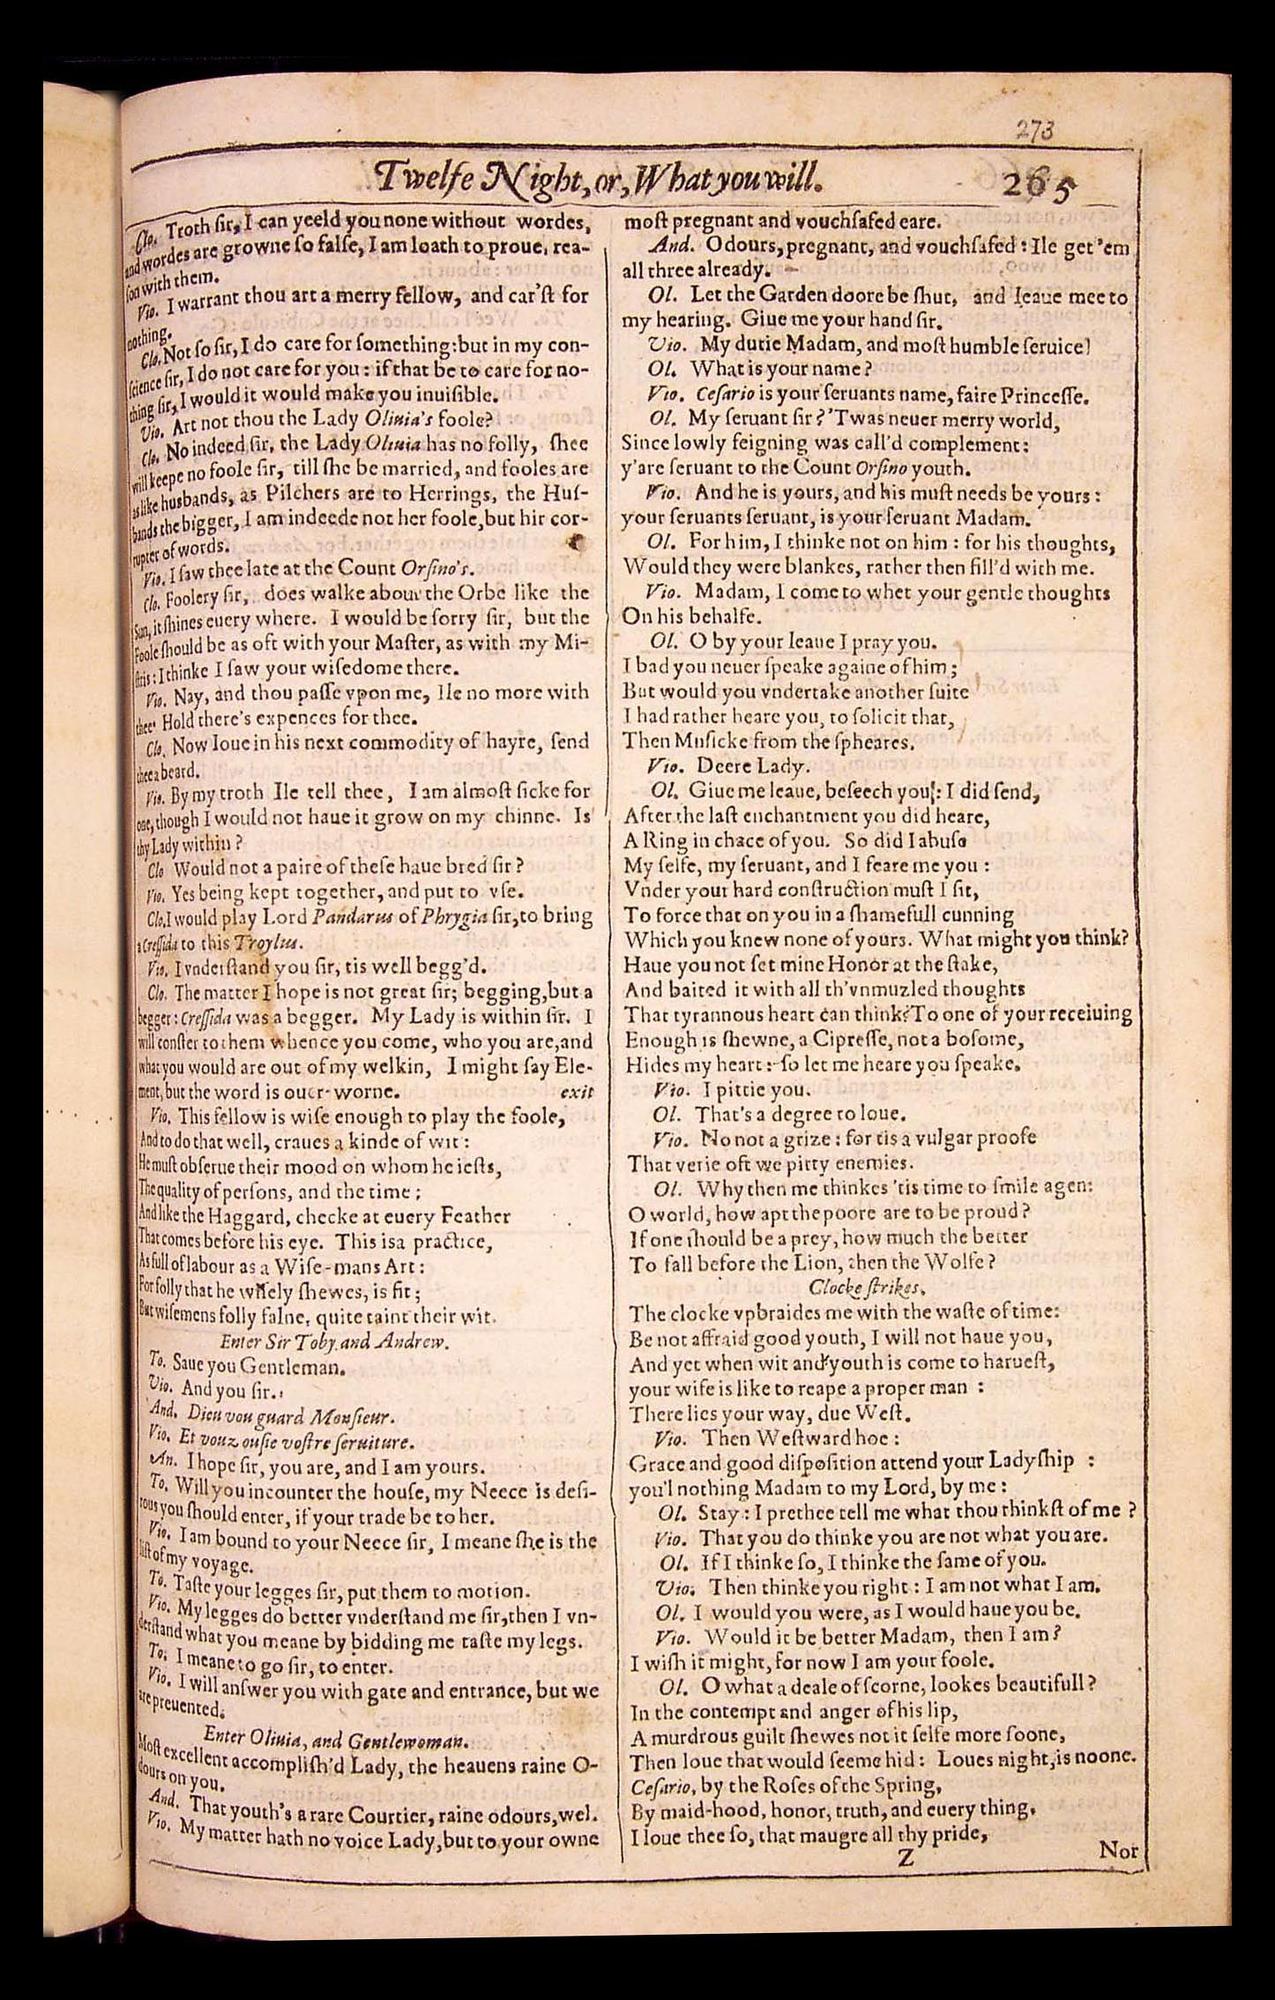 273
Twelfe Night, or, What you will.
265
Clo. Troth sir, I can yeeld you none without wordes,
and wordes are growne so false, I am loath to proue, rea-
son with them.
Vio. I warrant thou art a merry fellow, and car'st for
nothing.
Clo. Not so sir, I do care for something: but in my con-
science sir, I do not care for you: if that be to care for no-
thing sir, I would it would make you inuisible.
Vio. Art not thou the Lady Oliuia's foole?
Clo. No indeed sir, the Lady Oliuia has no folly, shee
will keepe no foole sir, till she be married, and fooles are
as like husbands, as Pilchers are to Herrings, the Hus-
bands the bigger, I am indeede not her foole, but hir cor-
rupter of words.
Vio. I saw thee late at the Count Orsino's.
Clo. Foolery sir, does walke about the Orbe like the
Sun, it shines euery where. I would be sorry sir, but the
Foole should be as oft with your Master, as with my Mi-
stris: I thinke I saw your wisedome there.
Vio. Nay, and thou passe vpon me, Ile no more with
thee. Hold there's expences for thee.
Clo. Now Ioue in his next commodity of hayre, send
thee a beard.
Vio. By my troth Ile tell thee, I am almost sicke for
one, though I would not haue it grow on my chinne. Is
thy Lady within?
Clo Would not a paire of these haue bred sir?
Vio. Yes being kept together, and put to vse.
Clo. I would play Lord Pandarus of Phrygia sir, to bring
a Cressida to this Troylus.
Vio. I vnderstand you sir, tis well begg'd.
Clo. The matter I hope is not great sir; begging, but a
begger: Cressida was a begger. My Lady is within sir. I
will conster to them whence you come, who you are, and
what you would are out of my welkin, I might say Ele-
ment, but the word is ouer-worne. exit
Vio. This fellow is wise enough to play the foole,
And to do that well, craues a kinde of wit:
He must obserue their mood on whom he iests,
The quality of persons, and the time;
And like the Haggard, checke at euery Feather
That comes before his eye. This is a practice,
As full of labour as a Wise-mans Art:
For folly that he wisely shewes, is fit;
But wisemens folly falne, quite taint their wit.
Enter Sir Toby and Andrew.
To. Saue you Gentleman.
Vio. And you sir.
And. Dieu vou guard Monsieur.
Vio. Et vouz ousie vostre seruiture.
An. I hope sir, you are, and I am yours.
To. Will you incounter the house, my Neece is desi-
rous you should enter, if your trade be to her.
Vio. I am bound to your Neece sir, I meane she is the
list of my voyage.
To. Taste your legges sir, put them to motion.
Vio. My legges do better vnderstand me sir, then I vn-
derstand what you meane by bidding me taste my legs.
To. I meane to go sir, to enter.
Vio. I will answer you with gate and entrance, but we
are preuented.
Enter Oliuia, and Gentlewoman.
Most excellent accomplish'd Lady, the heauens raine O-
dours on you.
And. That youth's a rare Courtier, raine odours, wel.
Vio. My matter hath no voice Lady, but to your owne
most pregnant and vouchsafed eare.
And. Odours, pregnant, and vouchsafed: Ile get 'em
all three already.
Ol. Let the Garden doore be shut, and leaue mee to
my hearing. Giue me your hand sir.
Vio. My dutie Madam, and most humble seruice
Ol. What is your name?
Vio. Cesario is your seruants name, faire Princesse.
Ol. My seruant sir? 'Twas neuer merry world,
Since lowly feigning was call'd complement:
y'are seruant to the Count Orsino youth.
Vio. And he is yours, and his must needs be yours:
your seruants seruant, is your seruant Madam.
Ol. For him, I thinke not on him: for his thoughts,
Would they were blankes, rather then fill'd with me.
Vio. Madam, I come to whet your gentle thoughts
On his behalfe.
Ol. O by your leaue I pray you.
I bad you neuer speake againe of him;
But would you vndertake another suite
I had rather heare you, to solicit that,
Then Musicke from the spheares.
Vio. Deere Lady.
Ol. Giue me leaue, beseech you: I did send,
After the last enchantment you did heare,
A Ring in chace of you. So did I abuse
My selfe, my seruant, and I feare me you:
Vnder your hard construction must I sit,
To force that on you in a shamefull cunning
Which you knew none of yours. What might you think?
Haue you not set mine Honor at the stake,
And baited it with all th'vnmuzled thoughts
That tyrannous heart can think? To one of your receiuing
Enough is shewne, a Cipresse, not a bosome,
Hides my heart: so let me heare you speake.
Vio. I pittie you.
Ol. That's a degree to loue.
Vio. No not a grize: for tis a vulgar proofe
That verie oft we pitty enemies.
Ol. Why then me thinkes 'tis time to smile agen:
O world, how apt the poore are to be proud?
If one should be a prey, how much the better
To fall before the Lion, then the Wolfe?
Clocke strikes.
The clocke vpbraides me with the waste of time:
Be not affraid good youth, I will not haue you,
And yet when wit and youth is come to haruest,
your wife is like to reape a proper man:
There lies your way, due West.
Vio. Then Westward hoe:
Grace and good disposition attend your Ladyship:
you'l nothing Madam to my Lord, by me:
Ol. Stay: I prethee tell me what thou thinkst of me?
Vio. That you do thinke you are not what you are.
Ol. If I thinke so, I thinke the same of you.
Vio. Then thinke you right: I am not what I am.
Ol. I would you were, as I would haue you be.
Vio. Would it be better Madam, then I am?
I wish it might, for now I am your foole.
Ol. O what a deale of scorne, lookes beautifull?
In the contempt and anger of his lip,
A murdrous guilt shewes not it selfe more soone,
Then loue that would seeme hid: Loues night, is noone.
Cesario, by the Roses of the Spring,
By maid-hood, honor, truth, and euery thing,
I loue thee so, that maugre all thy pride,
Z
Nor